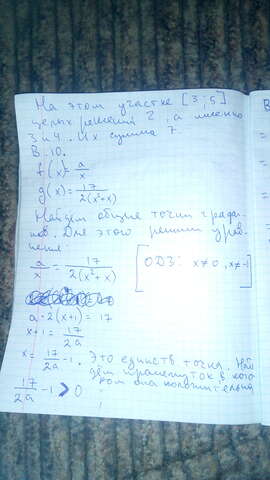 На этом участке [3 ; 5]
целых решений 2, а именно
3 и 4. Их сумма 7.
В-10.
f(x) = a/x
g(x) = 17/(2(x²+x))
Найдем общие точки графи-
ков. Для этого решим урав-
нение:
a/x = 17/(2(x²+x)) [ОДЗ: x≠0, x≠-1
a·2(x+1) = 17
x+1 = 17/2a
x = 17/2a - 1. Это единств точка. Най
дём промежуток в кото
ром она положительна
17/2a - 1 > 0